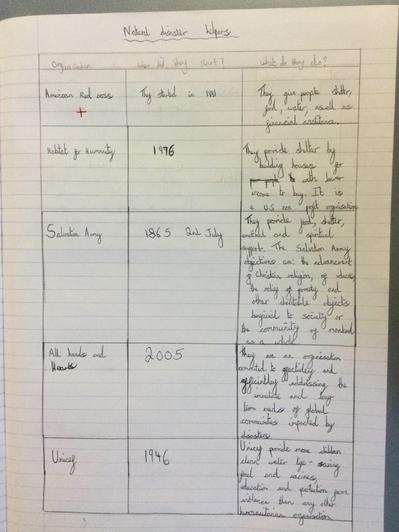 Natural disaster helpers
Organisation
When did they start?
What do they do?
American Red cross
They started in 1881
They give people shelter,
food, water, aswell as
financial assistance.
Habitat for Humanity
1976
They provide shelter by
building houses for
people with lower
income to buy. It is
a U.S non profit organisation
Salvation Army
1865 2nd July
They provide food, shelter,
and spiritual
support. The Salvation Army
objectives are: the advancement
of Christian religion, of education
the relief of poverty and
other charitable objects
beneficial to society or
the community of mankind
as a whole
All hands and
Hearts
2005
They are an organisation
committed to effectively and
efficiently addressing the
immediate and long
term needs of global
communities impacted by
disasters.
Unicef
1946
Unicef provide more children
clean water life-saving
food and vaccines,
education and protection from
violence than any other
humanitarian organisation